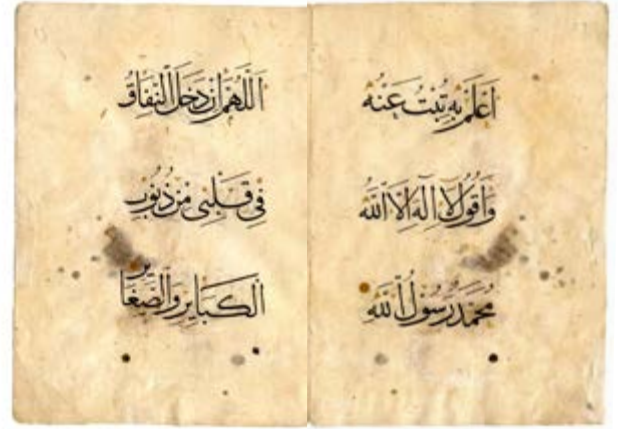 اَعْلَمْ بِهِ تُبْتُ عَنْهُ
وَاَقُولُ لَا اِلٰهَ اِلَّا اللّٰهُ
مُحَمَّدٌ رَسُولُ اللّٰهِ
اَللّٰهُمَّ اِنْ دَخَلَ النِّفَاقُ
فِي قَلْبِي مِنْ ذُنُوبِ
الْكَبَايِرِ وَالصَّغَايِرِ